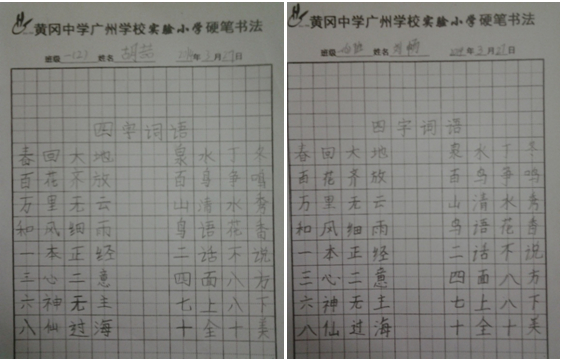 黄冈中学广州学校实验小学硬笔书法
班级 一(2) 姓名 年 3月 日
四字词语
春回大地 泉水丁冬
百花齐放 百鸟争鸣
万里无云 山清水秀
和风细雨 鸟语花香
一本正经 二话不说
三心二意 四面八方
六神无主 七上八下
八仙过海 十全十美
黄冈中学广州学校实验小学硬笔书法
班级 姓名 年 3月 日
四字词语
春回大地 泉水丁冬
百花齐放 百鸟争鸣
万里无云 山清水秀
和风细雨 鸟语花香
一本正经 二话不说
三心二意 四面八方
六神无主 七上八下
八仙过海 十全十美